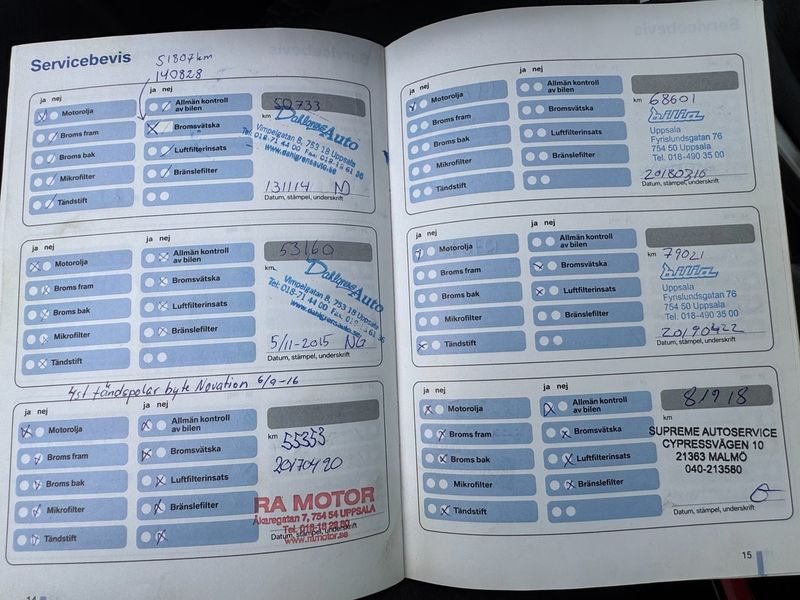 Servicebevis
51807km
140828
ja nej
ja nej
Motorolja
Broms fram
Broms bak
Mikrofilter
Tändstift
Allmän kontroll
av bilen
Bromsvätska
Luftfilterinsats
Bränslefilter
50733
Dahlgrens Auto
Vimoelgatan 8, 753 18 Uppsala
Tel. 018-71 44 00
www.dahlgrensauto.se
131114
Datum, stämpel, underskrift
ja nej
ja nej
Motorolja
Broms fram
Broms bak
Mikrofilter
Tändstift
Allmän kontroll
av bilen
Bromsvätska
Luftfilterinsats
Bränslefilter
53160
km
Dahlgrens Auto
Vimoelgatan 8, 753 18 Uppsala
Tel. 018-71 44 00
www.dahlgrensauto.se
5/11-2015 NG
Datum, stämpel, underskrift
4st tändspolar byte Novation 6/9-16
ja nej
ja nej
Motorolja
Broms fram
Broms bak
Mikrofilter
Tändstift
Allmän kontroll
av bilen
Bromsvätska
Luftfilterinsats
Bränslefilter
km
55353
20170420
RA MOTOR
Åkaregatan 7, 754 54 UPPSALA
www.ramotor.se
Datum, stämpel, underskrift
14
ja nej
ja nej
Motorolja
Broms fram
Broms bak
Mikrofilter
Tändstift
Allmän kontroll
av bilen
Bromsvätska
Luftfilterinsats
Bränslefilter
km 68601
Uppsala
Fyrislundsgatan 76
754 50 Uppsala
Tel. 018-490 35 00
20180310
Datum, stämpel, underskrift
ja nej
ja nej
Motorolja
Broms fram
Broms bak
Mikrofilter
Tändstift
Allmän kontroll
av bilen
Bromsvätska
Luftfilterinsats
Bränslefilter
km 79021
Uppsala
Fyrislundsgatan 76
754 50 Uppsala
Tel. 018-490 35 00
20190422
Datum, stämpel, underskrift
ja nej
ja nej
Motorolja
Broms fram
Broms bak
Mikrofilter
Tändstift
Allmän kontroll
av bilen
Bromsvätska
Luftfilterinsats
Bränslefilter
81918
km
SUPREME AUTOSERVICE
CYPRESSVÄGEN 10
21363 MALMÖ
040-213580
Datum, stämpel, underskrift
15